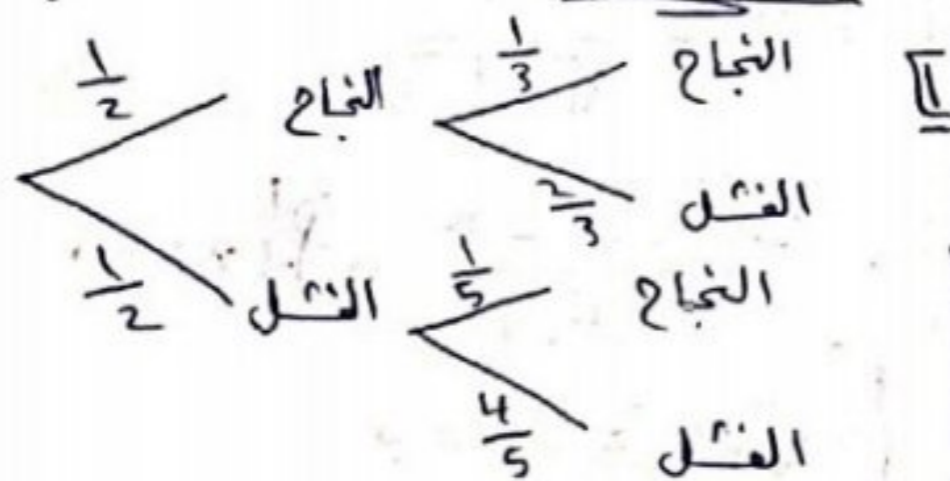 1/2 النجاح 1/3 النجاح
2/3 الفشل
1/2 الفشل 1/5 النجاح
4/5 الفشل